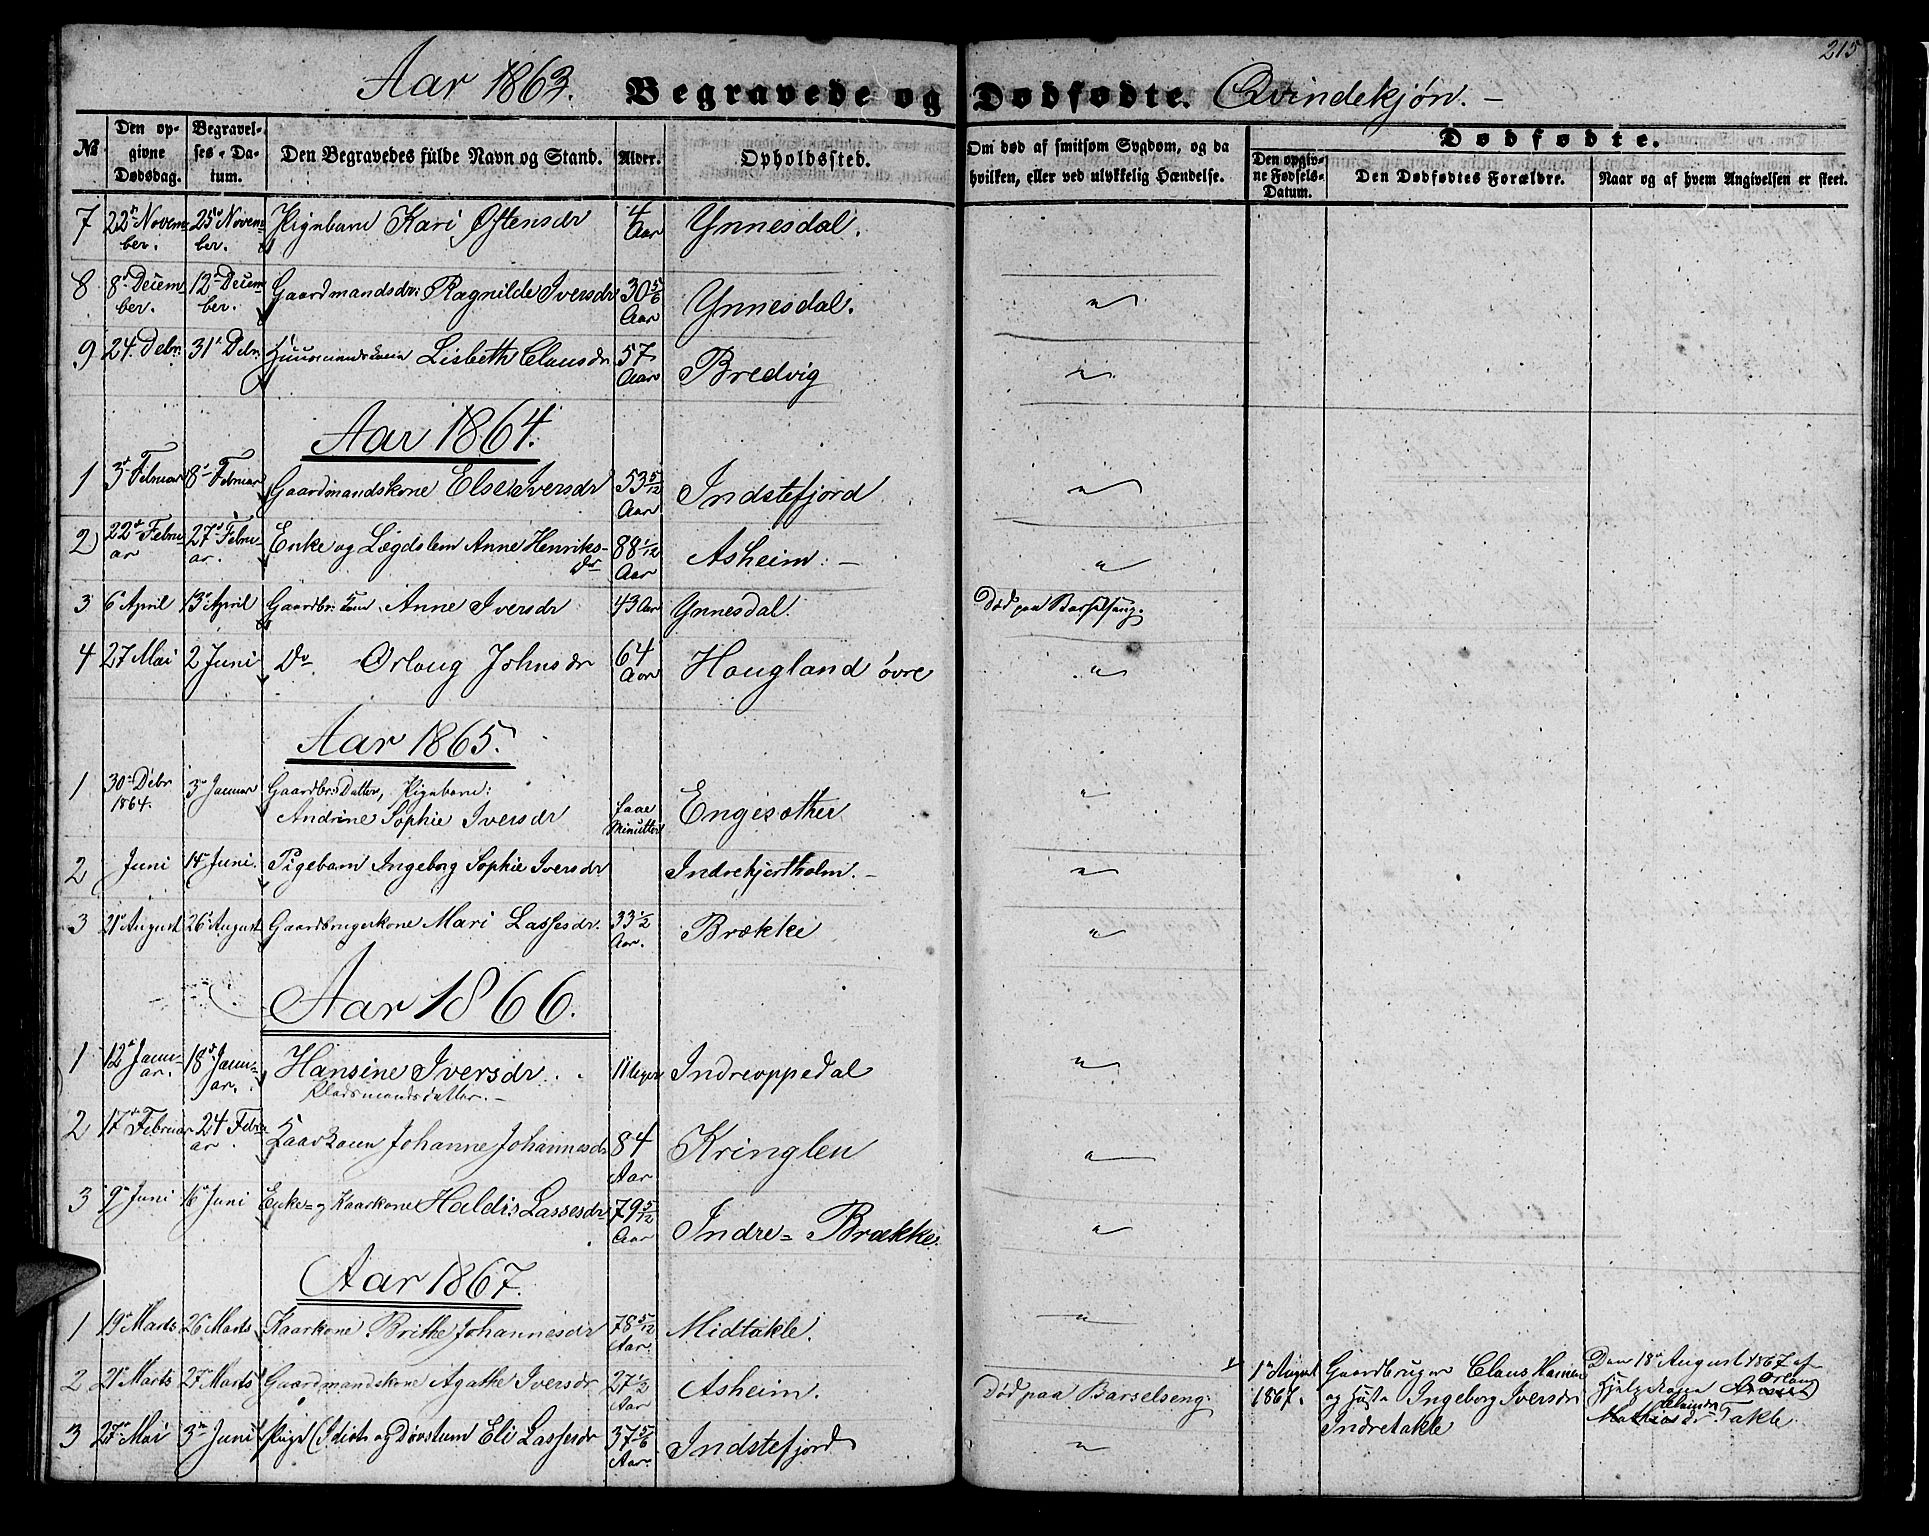 215
Aar 1863. Begravede og Dødfødte. Qvindekjøn.
№
Den opgivne Dødsdag.
Begravelses-Datum.
Den Begravedes fulde Navn og Stand.
Alder.
Opholdssted.
Om død af smitsom Sygdom, og da hvilken, eller ved ulykkelig Hændelse.
Dødfødte.
Den opgivne Fødsels-Datum.
Den Dødfødtes Forældre.
Naar og af hvem Angivelsen er skeet.
7 22de November. 25de November. Pigebarn Kari Østensdr 4 Aar Ynnesdal.
8 8de December. 12te December. Gaardmandsdr: Ragnilde Iversdr 30 5/6 Aar Ynnesdal. "
9 24. Debr. 31te Debr. Huusmandskone Lisbeth Clausdr 57 Aar Bredvig "
Aar 1864.
1 3die Februar 8de Februar Gaardmandskone Else Iversdr 53 5/12 Aar Indstefjord "
2 22de Februar 27de Februar. Enke og Lægdslem Anne Henriksdr 88 1/12 Aar Asheim. "
3 6te April 13de April Gaardbr: Kone Anne Iversdr 43 Aar Ynnesdal. Død paa Barselseng.
4 27 Mai 2 Juni Do Orloug Johnsdr 64 Aar Hougland øvre "
Aar 1865.
1 30te Debr 1864. 3die Januar Gaardbr: Datter, Pigebarn:
Andrine Sophie Iversdr faae Minutter Engesæther "
2 Juni 14de Juni. Pigebarn Ingeborg Sophie Iversdr Indrehjortholm. "
3 21de August 26de August Gaardbrugerkone Mari Lassesdr. 33 1/2 Aar. Brække "
Aar 1866.
1 12te Januar. 18de Januar. Hansine Iversdr 11 Uger Indreoppedal "
Pladsmandsdatter.
2 17de Februar 24 Februar Kaarkone Johanne Johannesdr 84 Aar Kringlen "
3 9de Juni 16de Juni Enke- og Kaarkone Haldis Lassesdr 79 5/12 Aar Indre-Brække. "
Aar 1867.
1 19de Marts 26 Marts Kaarkone Brithe Johannesdr 78 5/12 Aar. Midtakle. "
2 21de Marts 27de Marts Gaardmandskone Agathe Iversdr 27 1/2 Aar Asheim. Død paa Barselseng.
3 27de Mai 3die Juni Pige (Idiot og Døvstum Eli Lassesdr 37 5/6 Aar. Indstefjord "
1ste August 1867.
Gaardbruger Claus Hansen
og Hustr Ingeborg Iversdr
Indretakle
Den 18de August 1867 af
Hjelpekone Orloug
Mathiasdr Takle.